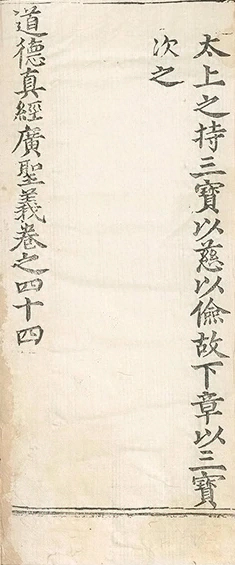 太上之持三寶以慈以儉故下章以三寶
次之
道德真經廣聖義卷之四十四